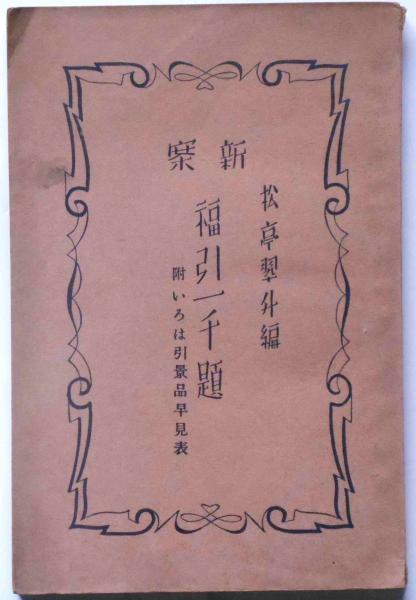 松亭翠外編
新案
福引一千題
附いろは引景品早見表